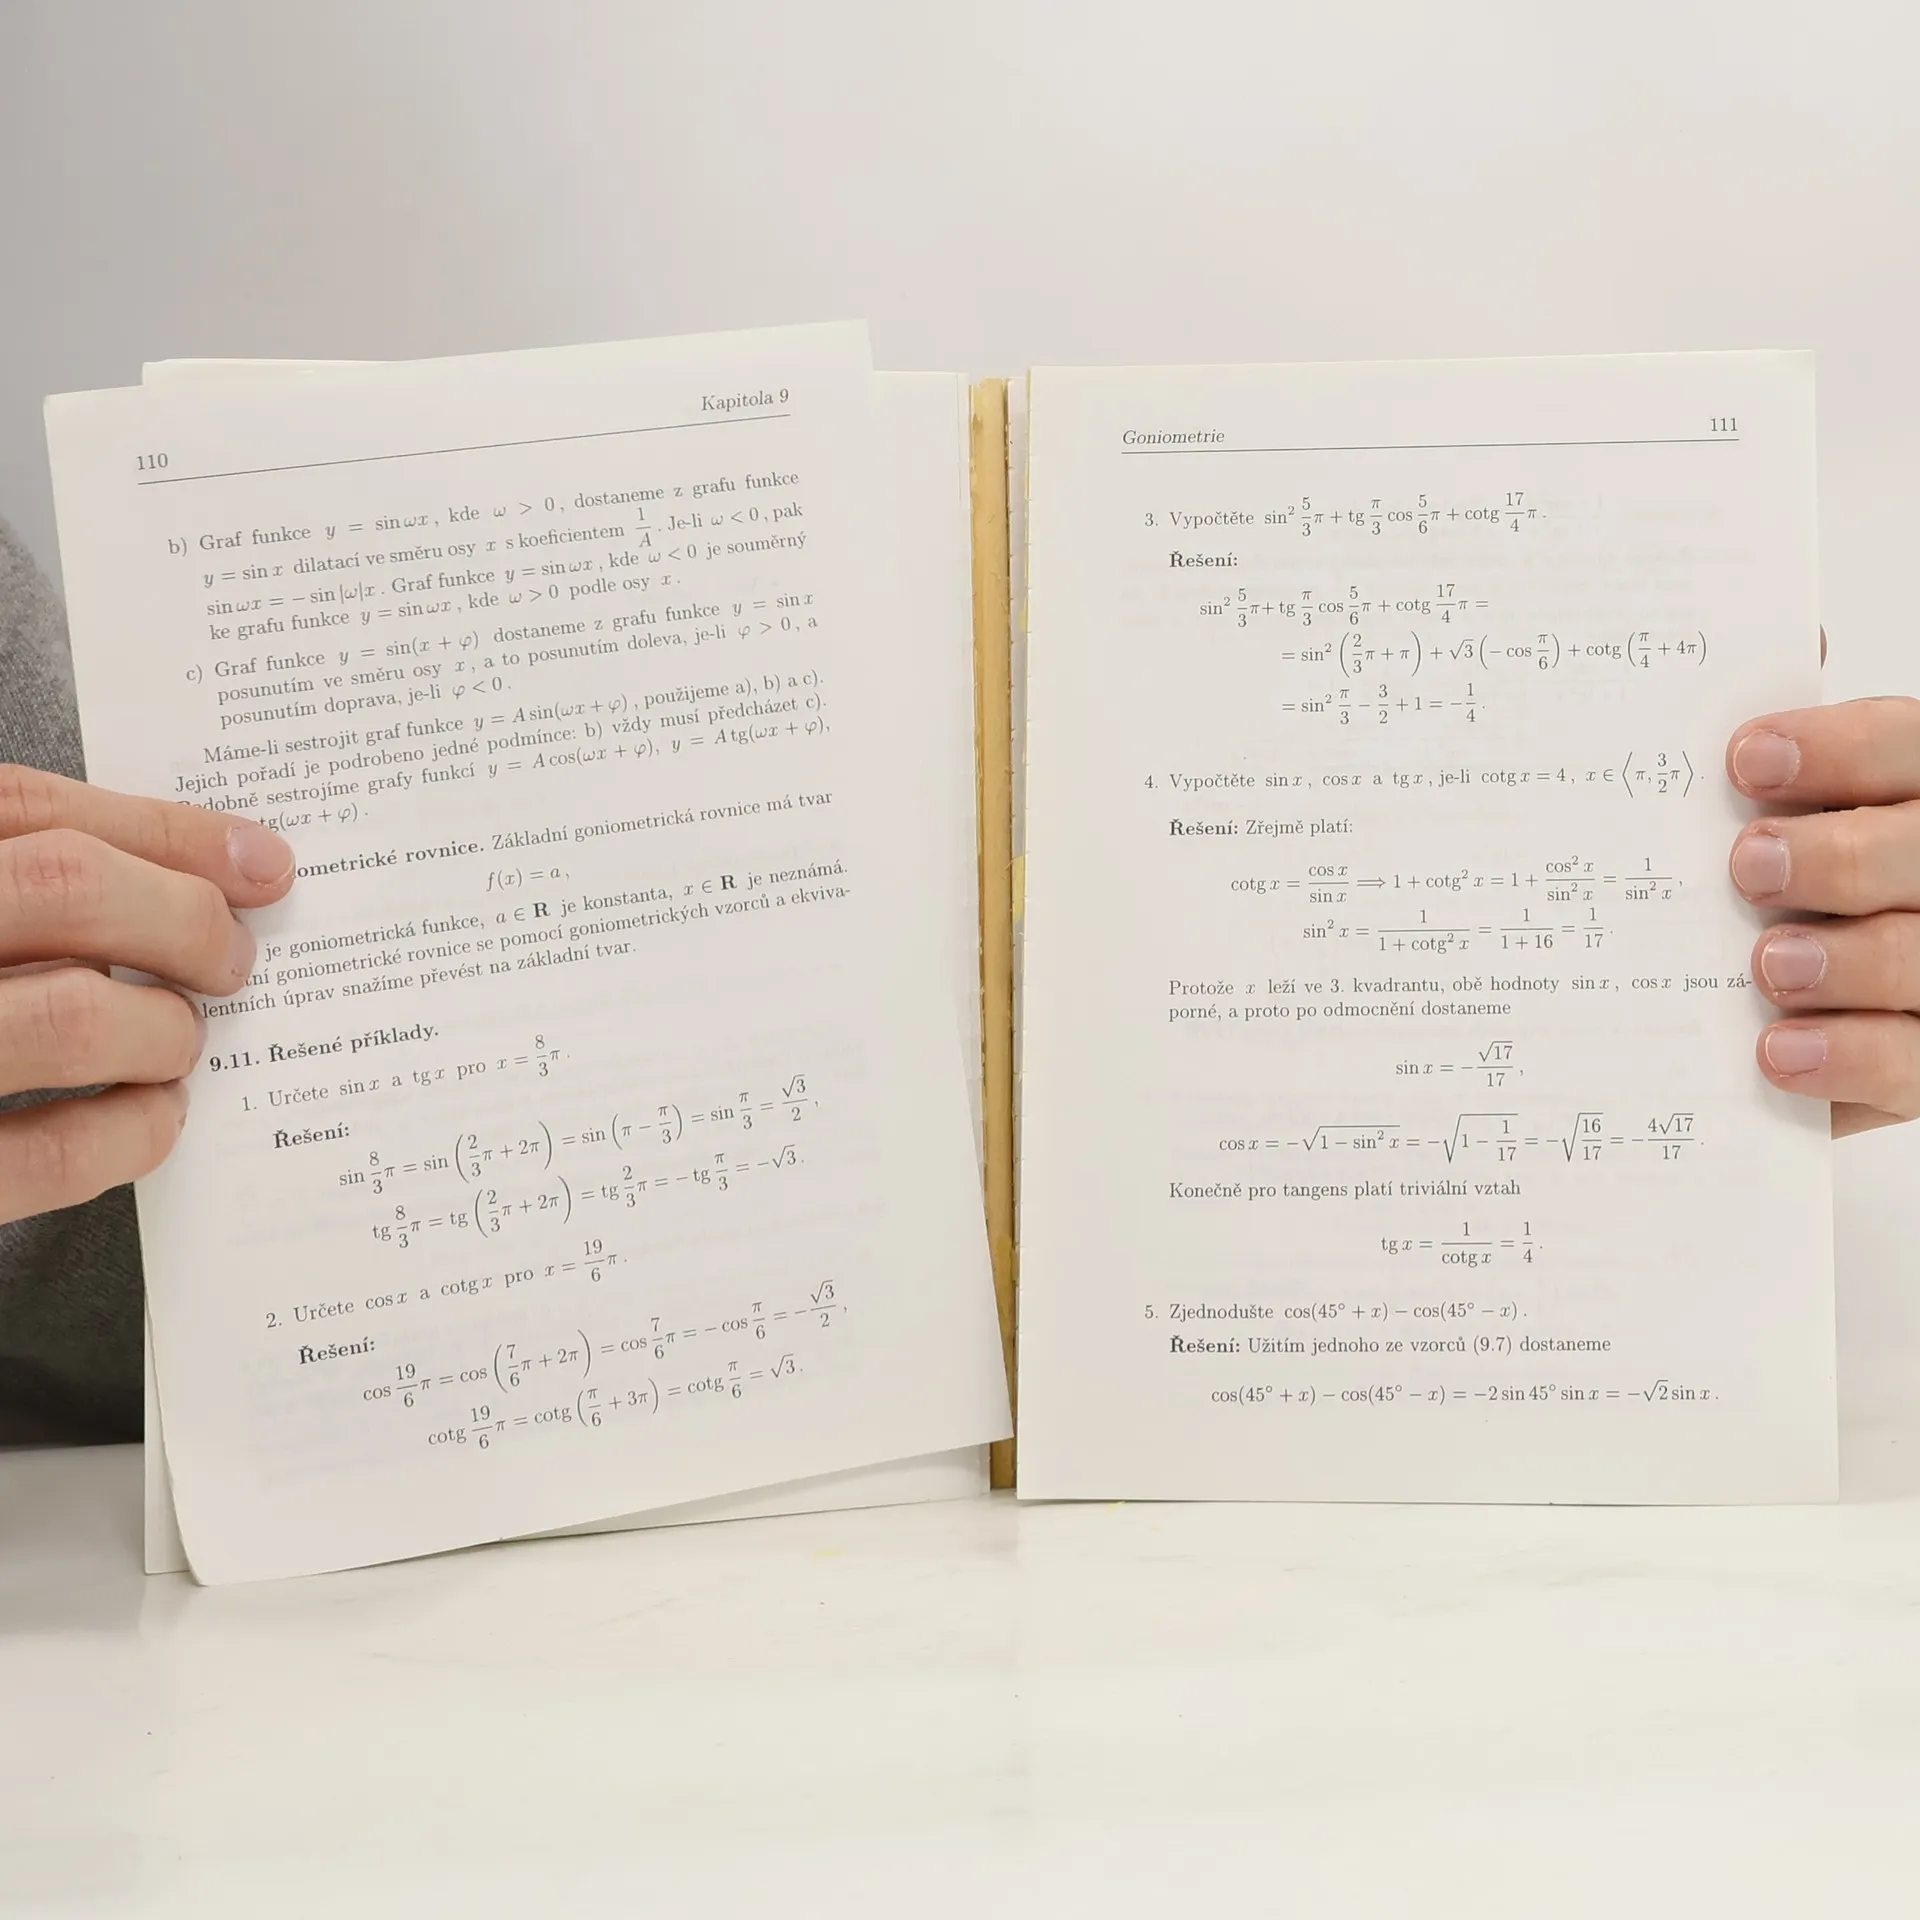 110
Kapitola 9
b) Graf funkce y = sin ωx , kde ω > 0 , dostaneme z grafu funkce
y = sin x dilatací ve směru osy x s koeficientem 1/A . Je-li ω < 0 , pak
sin ωx = − sin |ω|x . Graf funkce y = sin ωx , kde ω < 0 je souměrný
ke grafu funkce y = sin ωx , kde ω > 0 podle osy x .
c) Graf funkce y = sin(x + φ) dostaneme z grafu funkce y = sin x
posunutím ve směru osy x , a to posunutím doleva, je-li φ > 0 , a
posunutím doprava, je-li φ < 0 .
Máme-li sestrojit graf funkce y = A sin(ωx + φ) , použijeme a), b) a c).
Jejich pořadí je podrobeno jedné podmínce: b) vždy musí předcházet c).
sestrojíme grafy funkcí y = A cos(ωx + φ), y = A tg(ωx + φ),
tg(ωx + φ) .
ometrické rovnice. Základní goniometrická rovnice má tvar
f(x) = a ,
je goniometrická funkce, a ∈ R je konstanta, x ∈ R je neznámá.
goniometrické rovnice se pomocí goniometrických vzorců a ekviva-
lentních úprav snažíme převést na základní tvar.
9.11. Řešené příklady.
1. Určete sin x a tg x pro x = 8/3 π .
Řešení:
sin 8/3 π = sin (2/3 π + 2π) = sin (π − π/3) = sin π/3 = √3/2 ,
tg 8/3 π = tg (2/3 π + 2π) = tg 2/3 π = − tg π/3 = −√3 .
2. Určete cos x a cotg x pro x = 19/6 π .
Řešení:
cos 19/6 π = cos (7/6 π + 2π) = cos 7/6 π = − cos π/6 = − √3/2 ,
cotg 19/6 π = cotg (π/6 + 3π) = cotg π/6 = √3 .
Goniometrie
111
3. Vypočtěte sin² 5/3 π + tg π/3 cos 5/6 π + cotg 17/4 π .
Řešení:
sin² 5/3 π + tg π/3 cos 5/6 π + cotg 17/4 π =
= sin² (2/3 π + π) + √3 (− cos π/6) + cotg (π/4 + 4π)
= sin² π/3 − 3/2 + 1 = − 1/4 .
4. Vypočtěte sin x , cos x a tg x , je-li cotg x = 4 , x ∈ ⟨π, 3/2 π⟩ .
Řešení: Zřejmě platí:
cotg x = cos x/sin x ⟹ 1 + cotg² x = 1 + cos² x/sin² x = 1/sin² x ,
sin² x = 1/(1 + cotg² x) = 1/(1 + 16) = 1/17 .
Protože x leží ve 3. kvadrantu, obě hodnoty sin x , cos x jsou zá-
porné, a proto po odmocnění dostaneme
sin x = − √17/17 ,
cos x = −√(1 − sin² x) = −√(1 − 1/17) = −√(16/17) = − 4√17/17 .
Konečně pro tangens platí triviální vztah
tg x = 1/cotg x = 1/4 .
5. Zjednodušte cos(45° + x) − cos(45° − x) .
Řešení: Užitím jednoho ze vzorců (9.7) dostaneme
cos(45° + x) − cos(45° − x) = −2 sin 45° sin x = −√2 sin x .